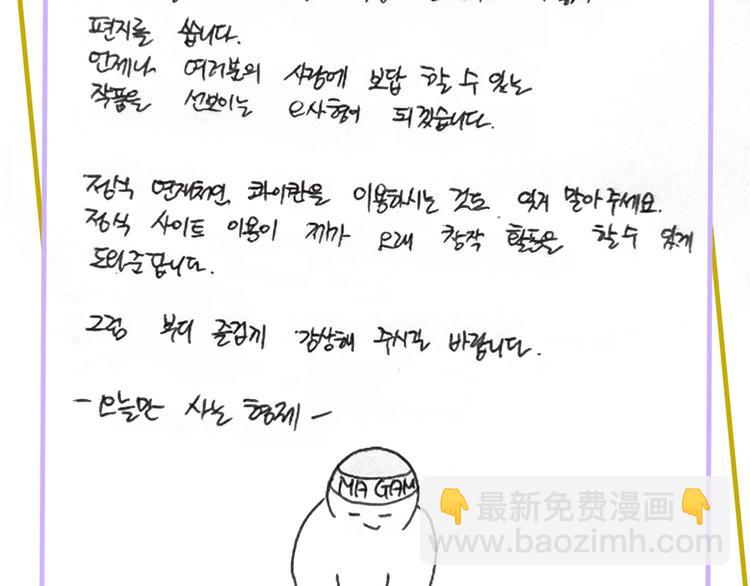 편지를 씁니다.
언제나 여러분의 사랑에 보답 할 수 있는
작품을 선보이는 형제가 되겠습니다.
정식 연재처인, 콰이칸을 이용하시는 것도 잊지 말아주세요.
정식 사이트 이용이 저희가 오래 창작 활동을 할 수 있게
도와준답니다.
그럼 부디 즐겁게 감상해 주시길 바랍니다.
- 오늘만 사는 형제 -
MA GAM
👇最新免费漫画👇
www.baozimh.com